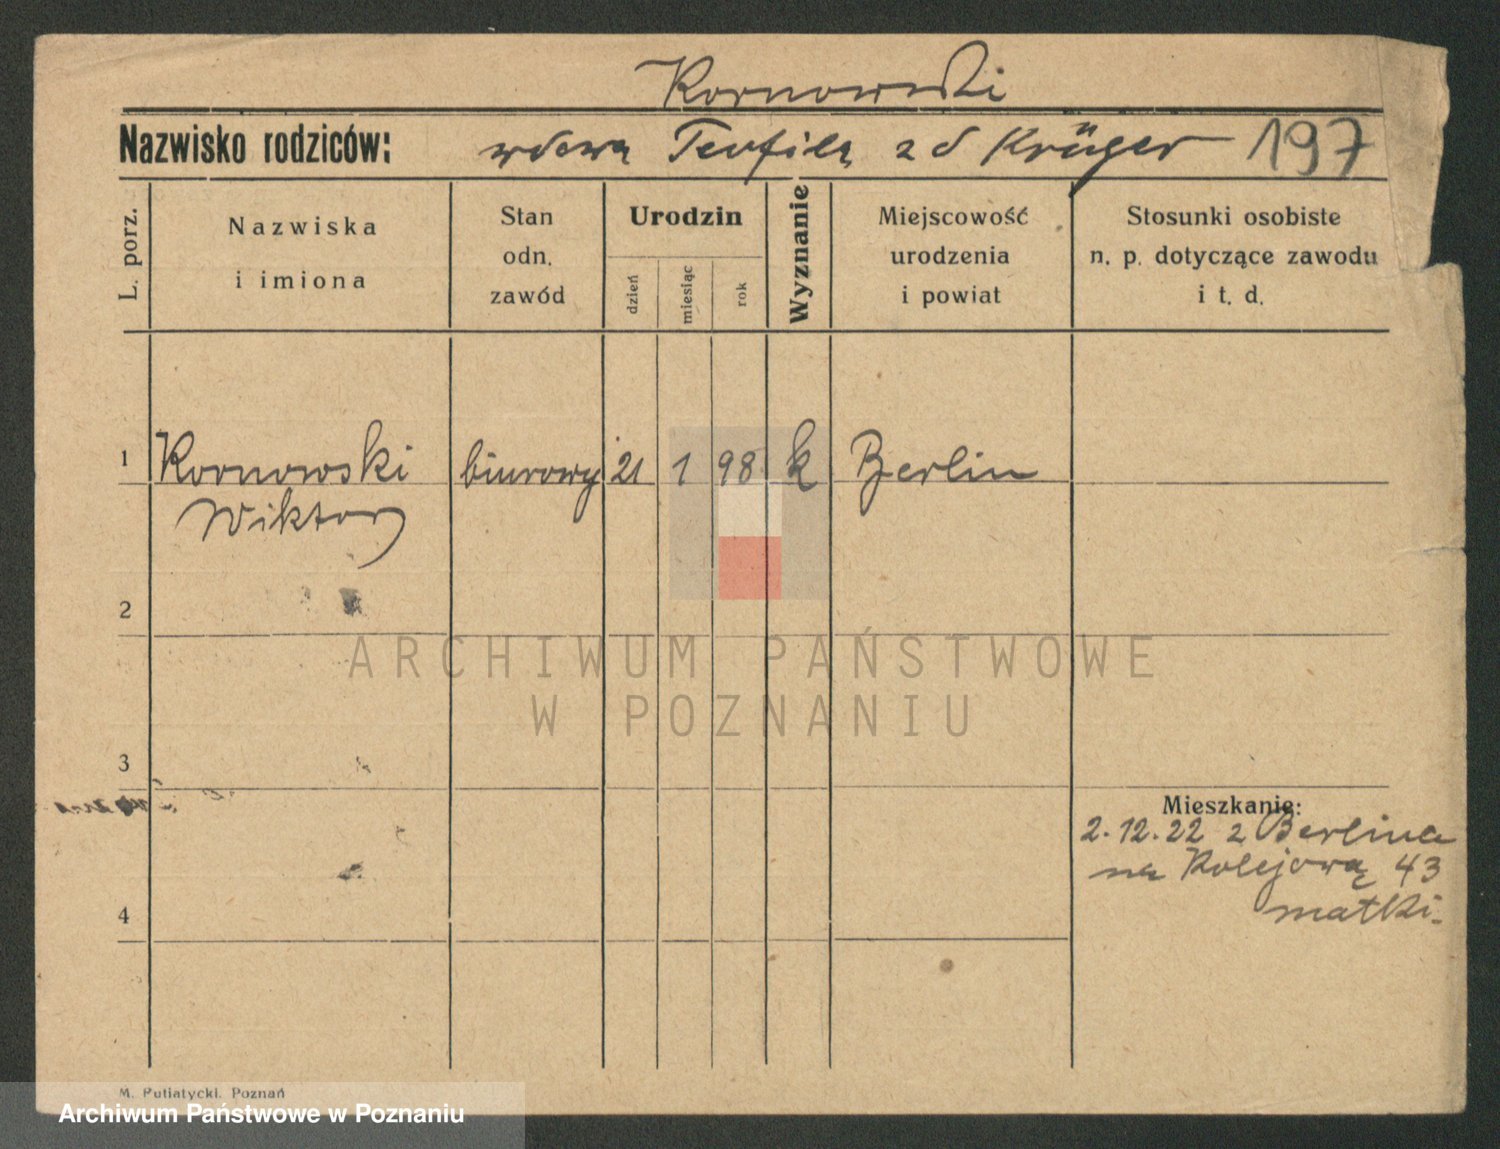 Kornowski
Nazwisko rodziców: wdowa Teofila z d Krüger 197
L. porz.
Nazwiska
i imiona
Stan
odn.
zawód
Urodzin
dzień
miesiąc
rok
Wyznanie
Miejscowość
urodzenia
i powiat
Stosunki osobiste
n. p. dotyczące zawodu
i t. d.
1 Kornowski biurowy 21 1 98 k Berlin
Wiktor
2
ARCHIWUM PAŃSTWOWE
W POZNANIU
3
Mieszkanie:
2.12.22 z Berlina
na Kolejową 43
matki.
4
M. Putiatycki. Poznań
Archiwum Państwowe w Poznaniu